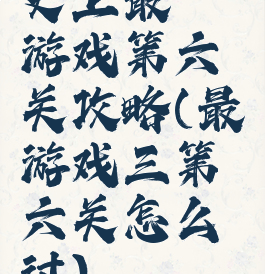 史上最
游戏第六
关攻略(最
游戏三第
六关怎么
过)